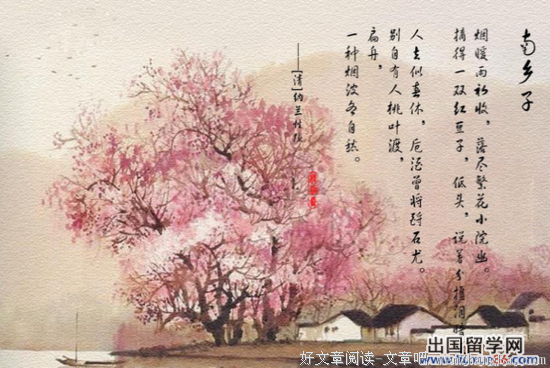 南乡子
烟暖雨初收，落尽繁花小院幽。
摘得一双红豆子，低头，说著分携泪暗
人去似春休，卮酒曾将酹石尤。
别自有人桃叶渡，
扁舟，
一种烟波各自愁。
——[清]纳兰性德
出国留学网
好文章阅读-文章吧